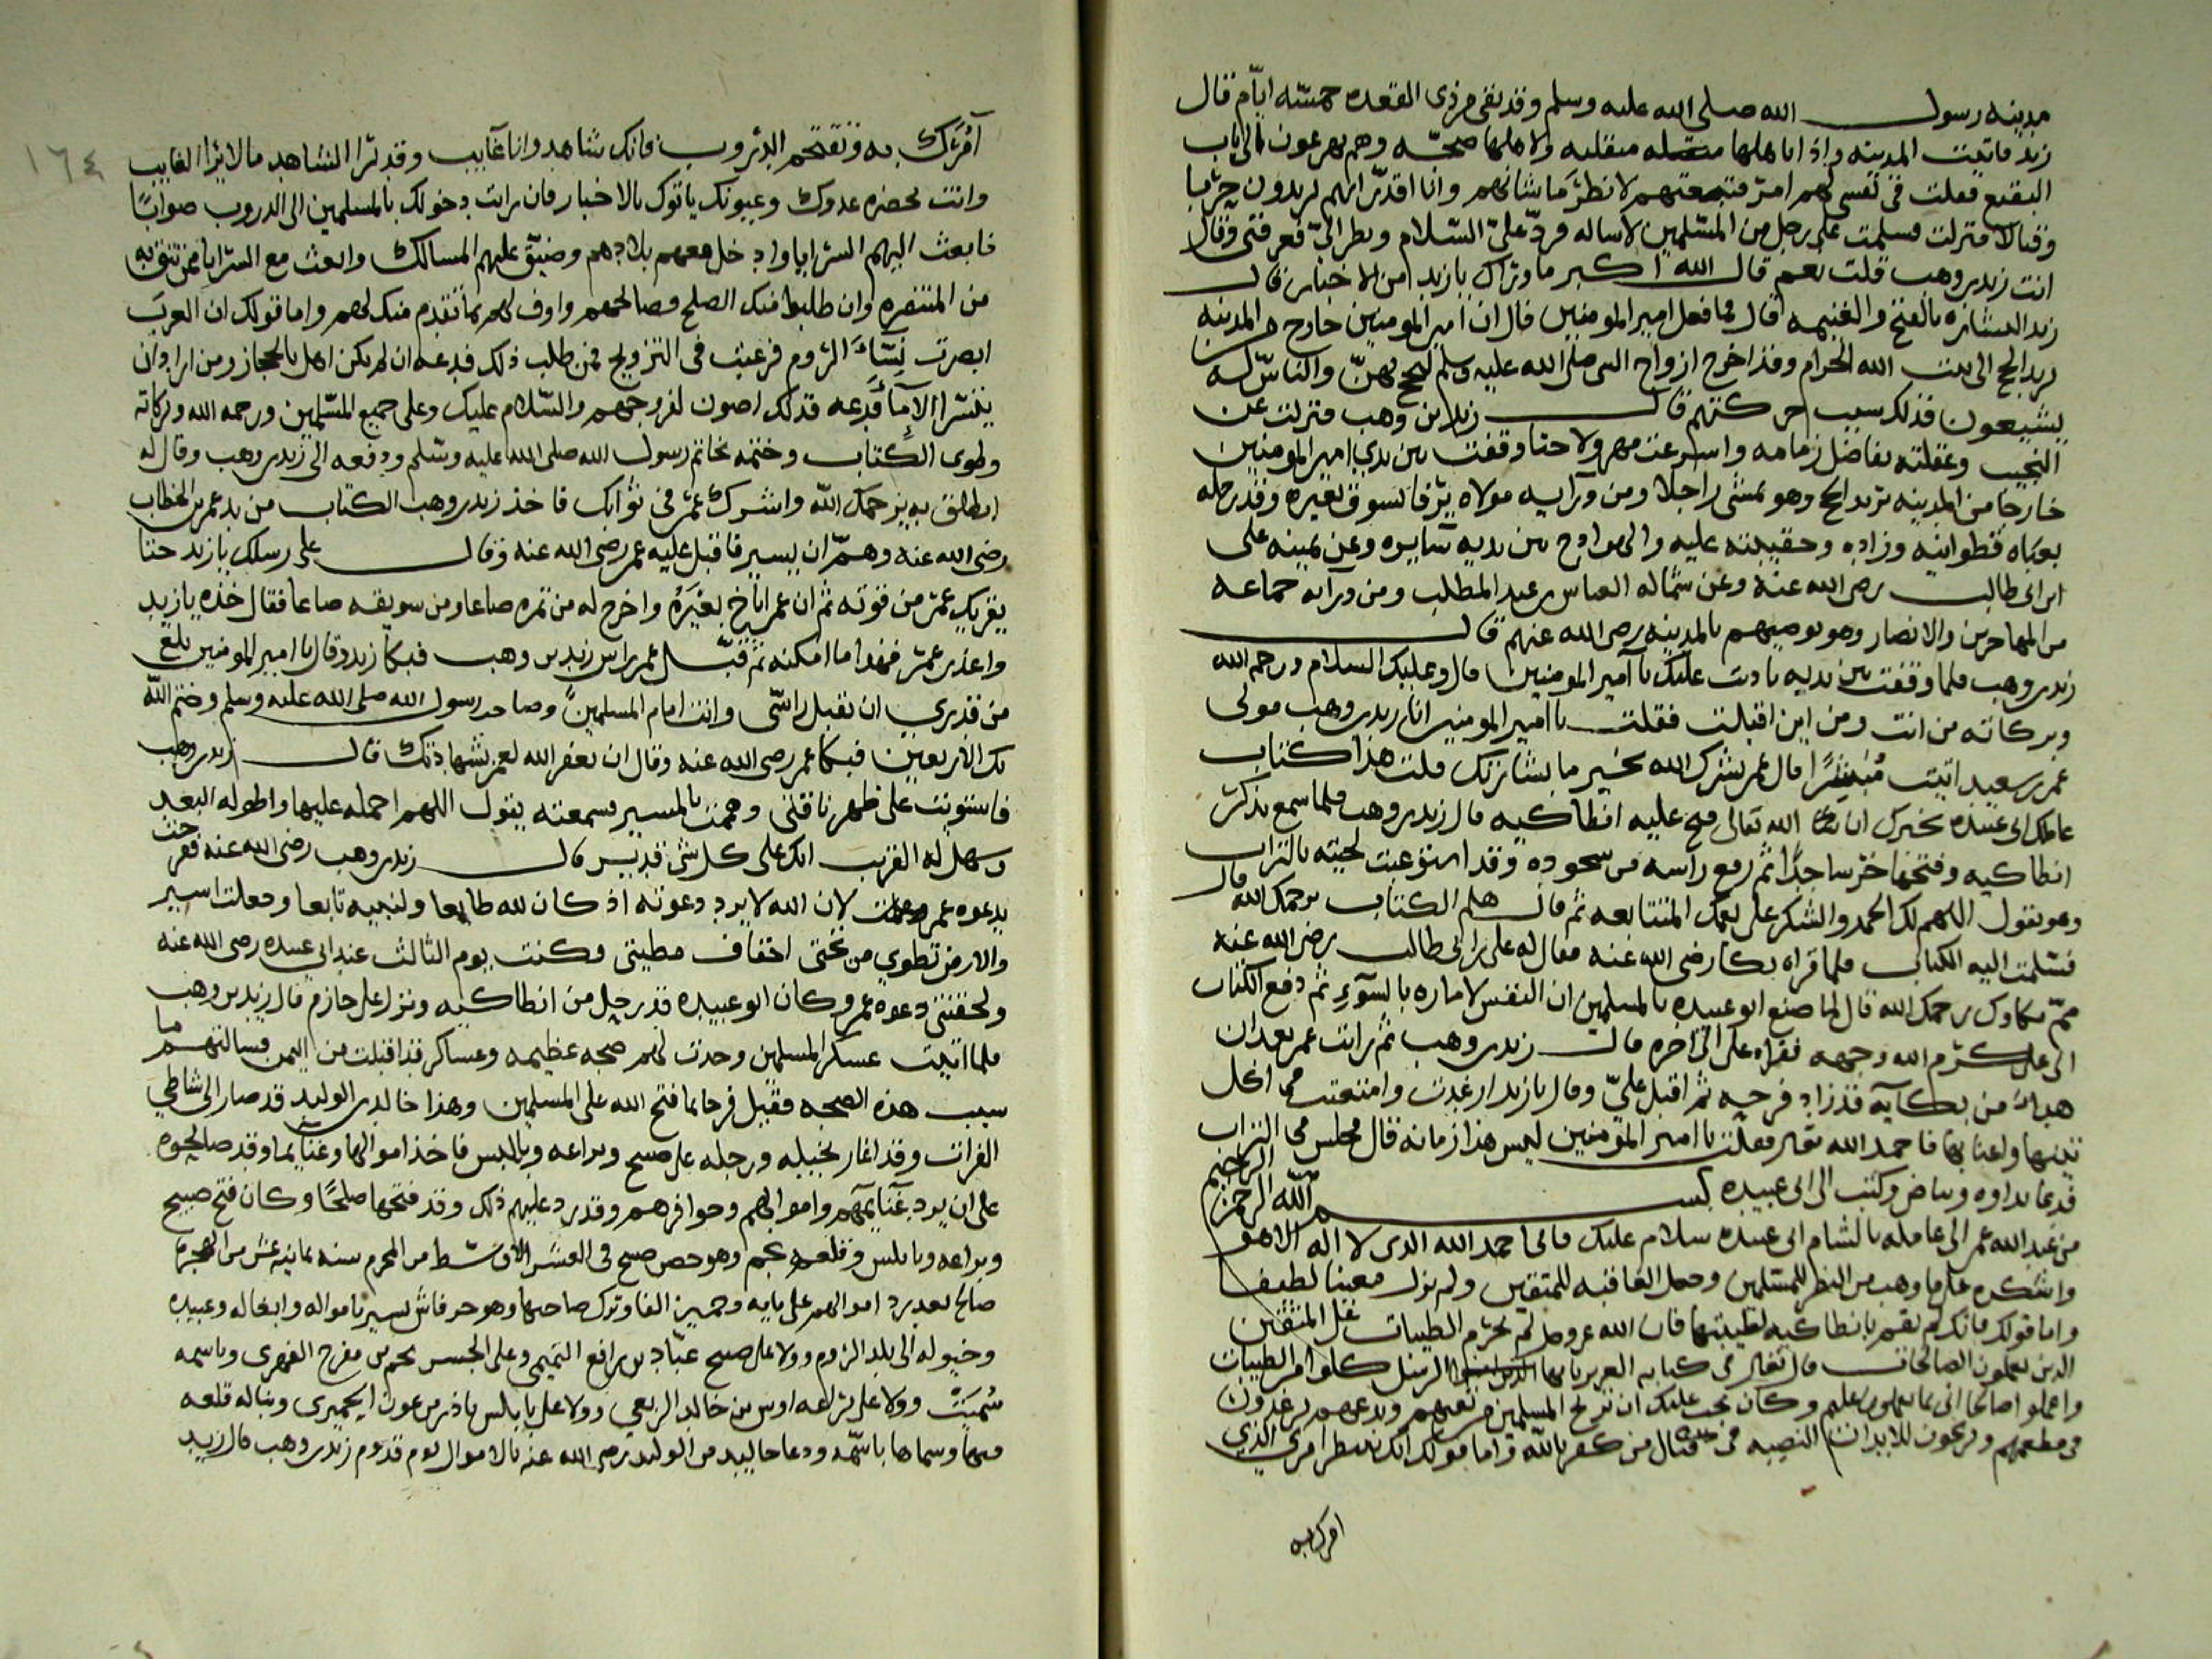 مدينه رسول الله صلى الله عليه وسلم وقد بقى من ذى القعده خمسه ايام قال
زيد فاتيت المدينه واذا باهلها منقلبه ولاهلها ضجّه وهم يهرعون الى باب
البقيع فقلت فى نفسى لهم امر فتبعتهم لانظر ما شانهم وانا اقدّر انهم يريدون حربا
وقتالا فنزلت فسلمت على رجل من المسلمين لاساله فردّ علىّ السّلام ونظر الىّ فعرفنى وقال
انت زيد بن وهب قلت نعم قال الله اكبر ما وراك يا زيد من الاخبار قال
زيد البشاره بالفتح والغنيمه قال فما فعل امير المومنين قال ان امير المومنين خارج من المدينه
يريد الحج الى بيت الله الحرام وقد اخرج ازواج النبى صلى الله عليه وسلم ليحج بهنّ والناس له
يشيعون فذلك سبب حركتهم قال زيد بن وهب فنزلت عن
النجيب وعقلته بفاضل زمامه واسرعت مهرولا حتا وقفت بين يدي امير المومنين
خارجا من المدينه يريد الحج وهو يمشى راجلا ومن ورآيه مولاه يرفا يسوق بعيره وقد رحله
بعباه قطوانيه وزاده وحقيبته عليه والهوادج بين يديه سايره وعن يمينه على
ابن ابى طالب رضى الله عنه وعن شماله العباس بن عبد المطلب ومن ورآيه جماعه
من المهاجرين والانصار وهو يوصيهم بالمدينه رضى الله عنهم قال
زيد بن وهب فلما وقفت بين يديه ناديت السلام عليك يا آمير المومنين قال وعليك السلام ورحمه الله
وبركاته من انت ومن اين اقبلت فقلت يا امير المومنين انا زيد بن وهب مولى
عمر بن سعيد اتيت مُبشرًا قال عمر بشرك الله بخير ما بشارتك قلت هذا كتاب
عاملك ابى عبيده يخبرك ان الله تعالى فتح عليه انطاكيه قال زيد بن وهب فلما سمع بذكر
انطاكيه وفتحها خرّ ساجدًا ثم رفع رآسه من سجوده وقد تترعبت لحيته بالتراب
وهو يقول اللهم لك الحمد والشكر على نعمك المتتابعه ثم قال هلم الكتاب يرحمك الله قال
فسّلمت اليه الكتاب فلما قراه بكا رضى الله عنه فقال له على بن ابى طالب رضى الله عنه
ممّ بكاوك يرحمك الله قال لما صنع ابو عبيده بالمسلمين ان النفس لاماره بالسّوءِ ثم دفع الكتاب
الى على كرّم الله وجهه فقراه على الى اخره قال زيد بن وهب ثم رايت عمر بعد ان
هدا من بكآيه قد زاد فرحه ثم اقبل علىّ وقال يا زيد ارغدت وامتنعت مما اكل
تينها واعنابها فاحمد الله تعالى فقلت يا امير المومنين ليس هذا زمانه قال فجلس على التراب
فدعا بداوه وبياض وكتب الى ابى عبيده بسم الله الرحمن الرحيم
من عبد الله عمر الى عامله بالشام ابى عبيده سلام عليك فانى احمد الله الذى لا اله الا هو
واشكره على ما وهب من النظر للمسّلمين وجعل العاقبه للمتقين ولم يزل معينا لطيفا
واما قولك فانك لم نقم بانطاكيه لطيبتها فان الله عز وجل لم يحرّم الطيبات على المتقين
الذين يعملون الصالحات قال تعالى فى كتابه العزيز يا ايها الرسل كلوا من الطيبات
واعملوا صالحا انى بما تعملون عليم وكان يجب عليك ان تريح المسلمين من تعبهم وتدعهم يرغدون
فى مطعمهم ويريحون للابدان النصبه فى قتال من كفر بالله واما قولك انك تنتظر امرى الذي
امرك به
١٦٤
آمُرَك به وتقتحم الدروب فانك شاهد وانا غآيب وقد يرا الشاهد ما لا يرا الغايب
وانت بحضره عدوك وعيونك ياتوك بالاخبار فان رايت دخولك بالمسلمين الى الدروب صوابًا
فابعث اليهم السرايا وادخل معهم بلادهم وضيّق عليهم المسالك وابعث مع السّرايا ممن تثق به
من المتنصره وان طلبوا منك الصلح فصالحهم واوف لهم بما تقدم منك لهم واما قولك ان العرب
ابصرت نِسَآء الروم فرغبت فى التزويج فمن طلب ذلك فدعه ان لم يكن اهل بالحجاز ومن اراد ان
يشترا الامآ فدعه فذلك اصون لفروجهم والسّلام عليك وعلى جميع المسّلمين ورحمه الله وبركاته
وطوى الكتاب وختمه بخاتم رسول الله صلى الله عليه وسّلم ودفعه الى زيد بن وهب وقال له
انطلق به يرحمك الله واشرك عمر فى ثوابك فاخذ زيد بن وهب الكتاب من يد عمر بن الخطاب
رضى الله عنه وهمّ ان يسير فاقبل عليه عمر رضى الله عنه وقال على رسلك يا زيد حتا
يقريك عمر من قوته ثم ان عمر اناخ بعيرَهُ واخرج له من تمره صاعا ومن سويقه صاعا فقال خذه يا زيد
واعذر عمر فهذا ما امكنه ثم قبّل عمر راس زيد بن وهب فبكا زيد وقال يا امير المومنين بلغ
من قدري ان تقبل راسّى وانت امام المسلمين وصاحب رسول الله صلى الله عليه وسلم وختم الله
بك الاربعين فبكا عمر رضى الله عنه وقال ان يغفر الله لعمر بشهادتك قال زيد بن وهب
فاستويت على ظهر ناقتى وهممت بالمسير فسمعته يقول اللهم احمله عليها واطو له البعيد
وسهل له القريب انك على كل شى قدير قال زيد بن وهب رضى الله عنه ففرحت
بدعوه عمر وعلمت لان الله لا يرد دعوته اذ كان لله طايعا ولنبيه تابعا وجعلت اسير
والارض تطوي من تحتى اخفاف مطيتى فكنت يوم الثالث عند ابى عبيده رضى الله عنه
ولحقتنى دعوه عمر وكان ابو عبيده قد رحل من انطاكيه ونزل على حازم قال زيد بن وهب
فلما اتيت عسكر المسلمين وجدت لهم ضجه عظيمه وعساكر قد اقبلت من اليمن فسالتهم ما
سبب هذه الضجه فقيل فرحا بما فتح الله على المسلمين وهذا خالد بن الوليد قد صار الى شاطى
الفرات وقد اغار بخيله ورجله على منبج وبزاعه وبالبس فاخذ اموالها وغنآيمها وقد صالحوه
على ان يرد غنآيمهم واموالهم وحوافرهم وقد رد عليهم ذلك وقد فتحها صلحًا وكان فتح منبج
وبزاعه وبابلس وقلعه نجم وهو حصن منبج فى العشر الاوسط من المحرم سنه ثمانيه عشر من الهجره
صالح بعد رد اموالهم على مايه وخمسين الفا وترك صاحبها وهو جرفاش يسير باموله وابغاله وعبيده
وخيوله الى بلد الروم وولا على منبج عبّاد بن رافع التميمى وعلى الجسر نجم بن مفرح الفهرى وباسمه
سُميَت وولا على بزاعه اوس بن خالد الربعي وولا على بابلس باذر بن عون الحميرى وبنا له قلعه
وسماها باسّمه ودعا خالد بن الوليد رضى الله عنه بالاموال يوم قدوم زيد بن وهب قال زيد